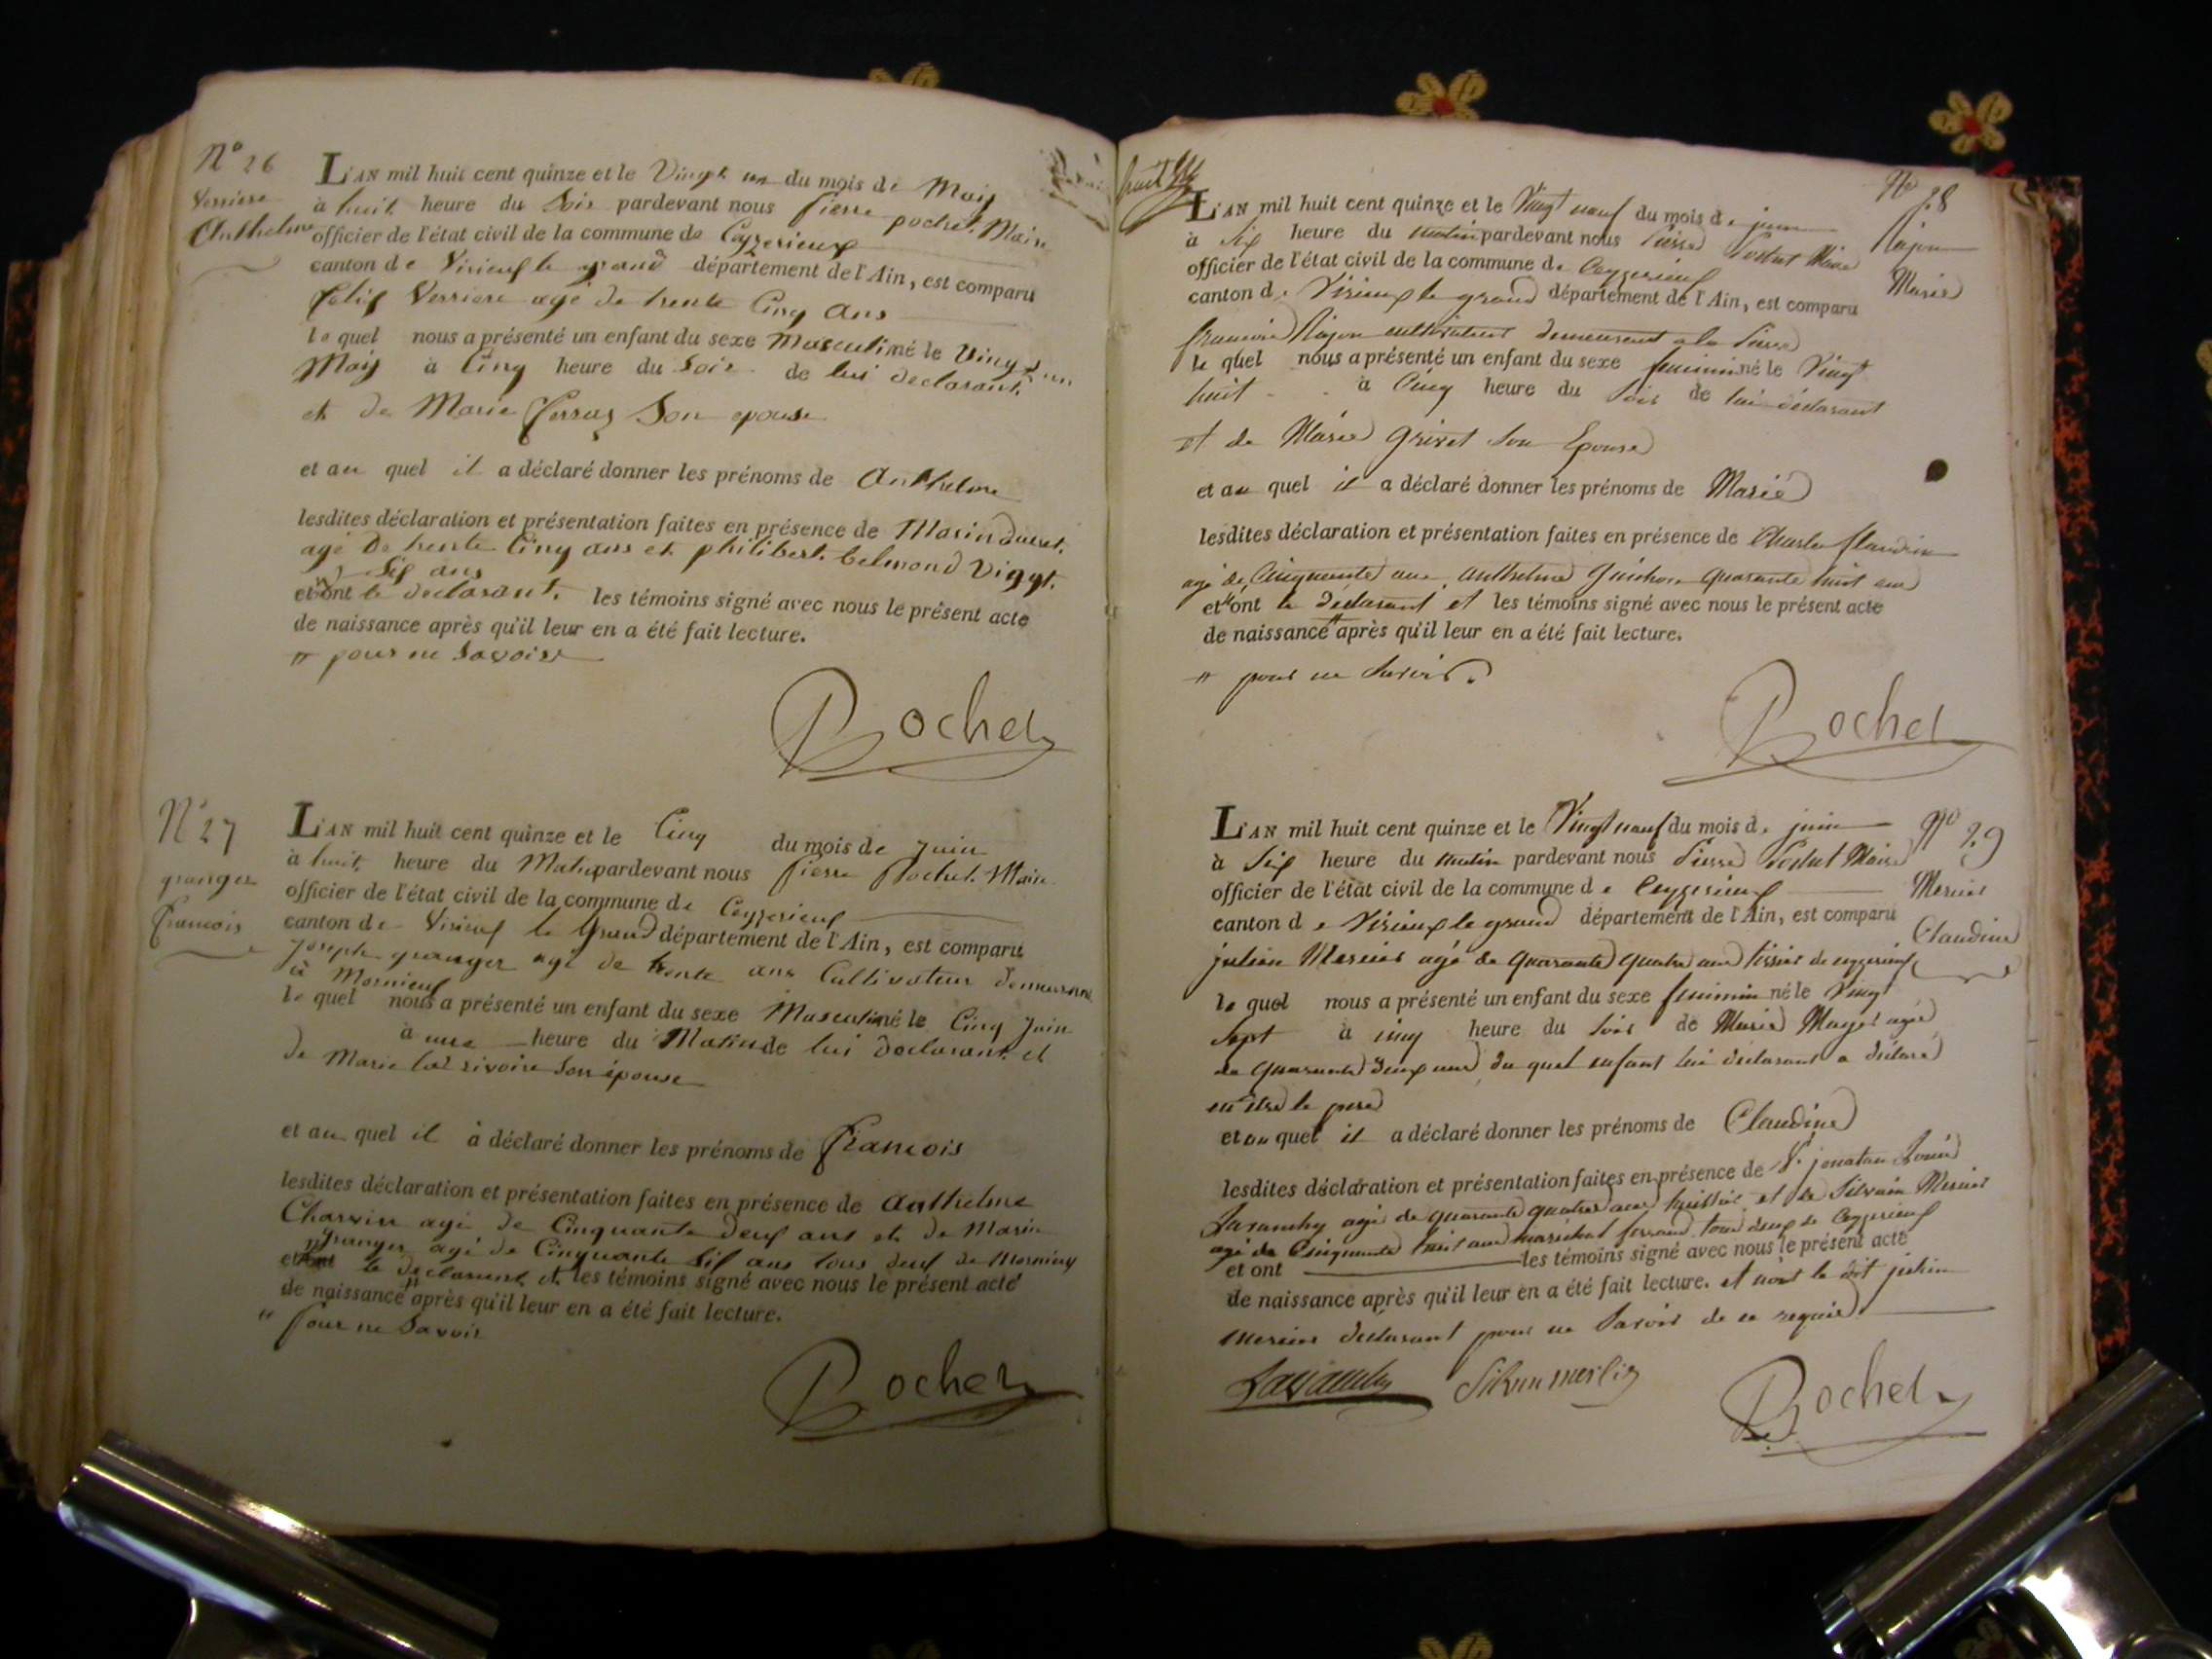 N° 26
Verriere
Anthelme
L'AN mil huit cent quinze et le Vingt un du mois de May
à huit heure du Soir pardevant nous pierre pochet Maire
officier de l'état civil de la commune de Ceyzerieux
canton de Virieux le grand département de l'Ain, est comparu
felix Verriere agé de trente Cinq ans
le quel nous a présenté un enfant du sexe Masculin né le Vingt un
May à Cinq heure du Soir de lui declarant
et de Marie ferraz Son epouse
et au quel il a déclaré donner les prénoms de Anthelme
lesdites déclaration et présentation faites en présence de Marin ducret
agé De trente Cinq ans et philibert belmond Vingt
Six ans
et ont le declarant les témoins signé avec nous le présent acte
de naissance après qu'il leur en a été fait lecture.
pour ne Savoire
Pochet
N° 27
granger
francois
L'AN mil huit cent quinze et le Cinq du mois de Juin
à huit heure du Matin pardevant nous pierre Pochet Maire
officier de l'état civil de la commune de Ceyzerieux
canton de Virieux le Grand département de l'Ain, est comparu
Joseph granger agé de trente ans Cultivateur demeurant
à Mornieux
le quel nous a présenté un enfant du sexe Masculin né le Cinq Juin
à une heure du Matin de lui declarant et
de Marie rivoire Son épouse
et au quel il à déclaré donner les prénoms de Francois
lesdites déclaration et présentation faites en présence de Anthelme
Charvin agé de Cinquante deux ans et de Marin
granger agé de Cinquante Six ans tous deux de Mornieux
et ont le declarant et les témoins signé avec nous le présent acte
de naissance après qu'il leur en a été fait lecture.
Pour ne Savoir
Pochet
huit
N° 28
Rajon
Marie
L'AN mil huit cent quinze et le Vingt neuf du mois de juin
à Six heure du matin pardevant nous Pierre Pochet Maire
officier de l'état civil de la commune de Ceyzerieux
canton de Virieux le grand département de l'Ain, est comparu
francois Rajon cultivateur demeurant a la
le quel nous a présenté un enfant du sexe feminin né le Vingt
huit à Cinq heure du Soir de lui déclarant
et de Marie Grivet Son Epouse
et au quel il a déclaré donner les prénoms de Marie
lesdites déclaration et présentation faites en présence de Charles flandrin
agé de Cinquante ans, anthelme Guichon quarante huit ans
et ont le déclarant et les témoins signé avec nous le présent acte
de naissance après qu'il leur en a été fait lecture.
pour ne Savoir.
Pochet
N° 29
Mercier
Claudine
L'AN mil huit cent quinze et le Vingt neuf du mois de juin
à Six heure du matin pardevant nous Pierre Pochet Maire
officier de l'état civil de la commune de Ceyzerieux
canton de Virieux le grand département de l'Ain, est comparu
julien Mercier agé de quarante quatre ans tissier de ceyzerieux
le quel nous a présenté un enfant du sexe feminin né le Vingt
Sept à cinq heure du Soir de Marie Mayet agée
de quarante deux ans du quel enfant lui déclarant a déclaré
en être le pere
et au quel il a déclaré donner les prénoms de Claudine
lesdites déclaration et présentation faites en présence de Sr. jonatan Louis
agé de quarante quatre ans huissier et de Silvain Mercier
agé de Cinquante huit ans marechal ferrand tous deux de Ceyzerieux
et ont les témoins signé avec nous le présent acte
de naissance après qu'il leur en a été fait lecture. et non le dit julien
mercier déclarant pour ne Savoir de ce requis.
Pochet